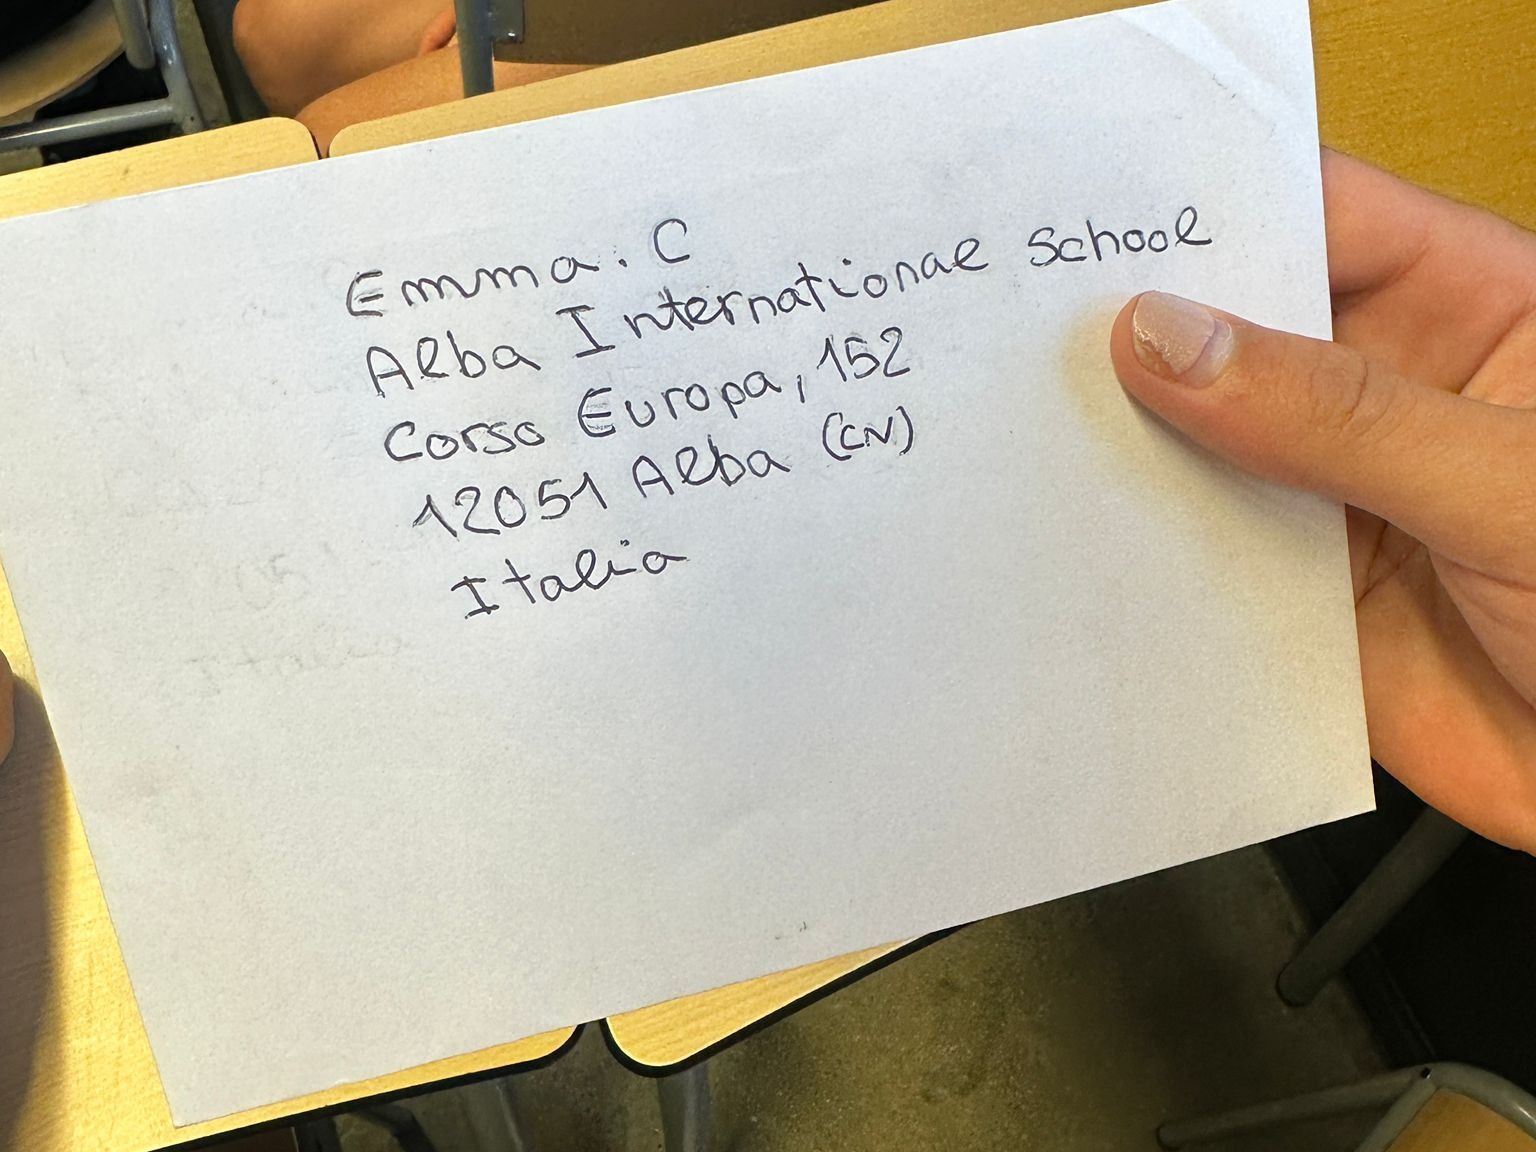 Emma. C
Alba International School
Corso Europa, 152
12051 Alba (CN)
Italia